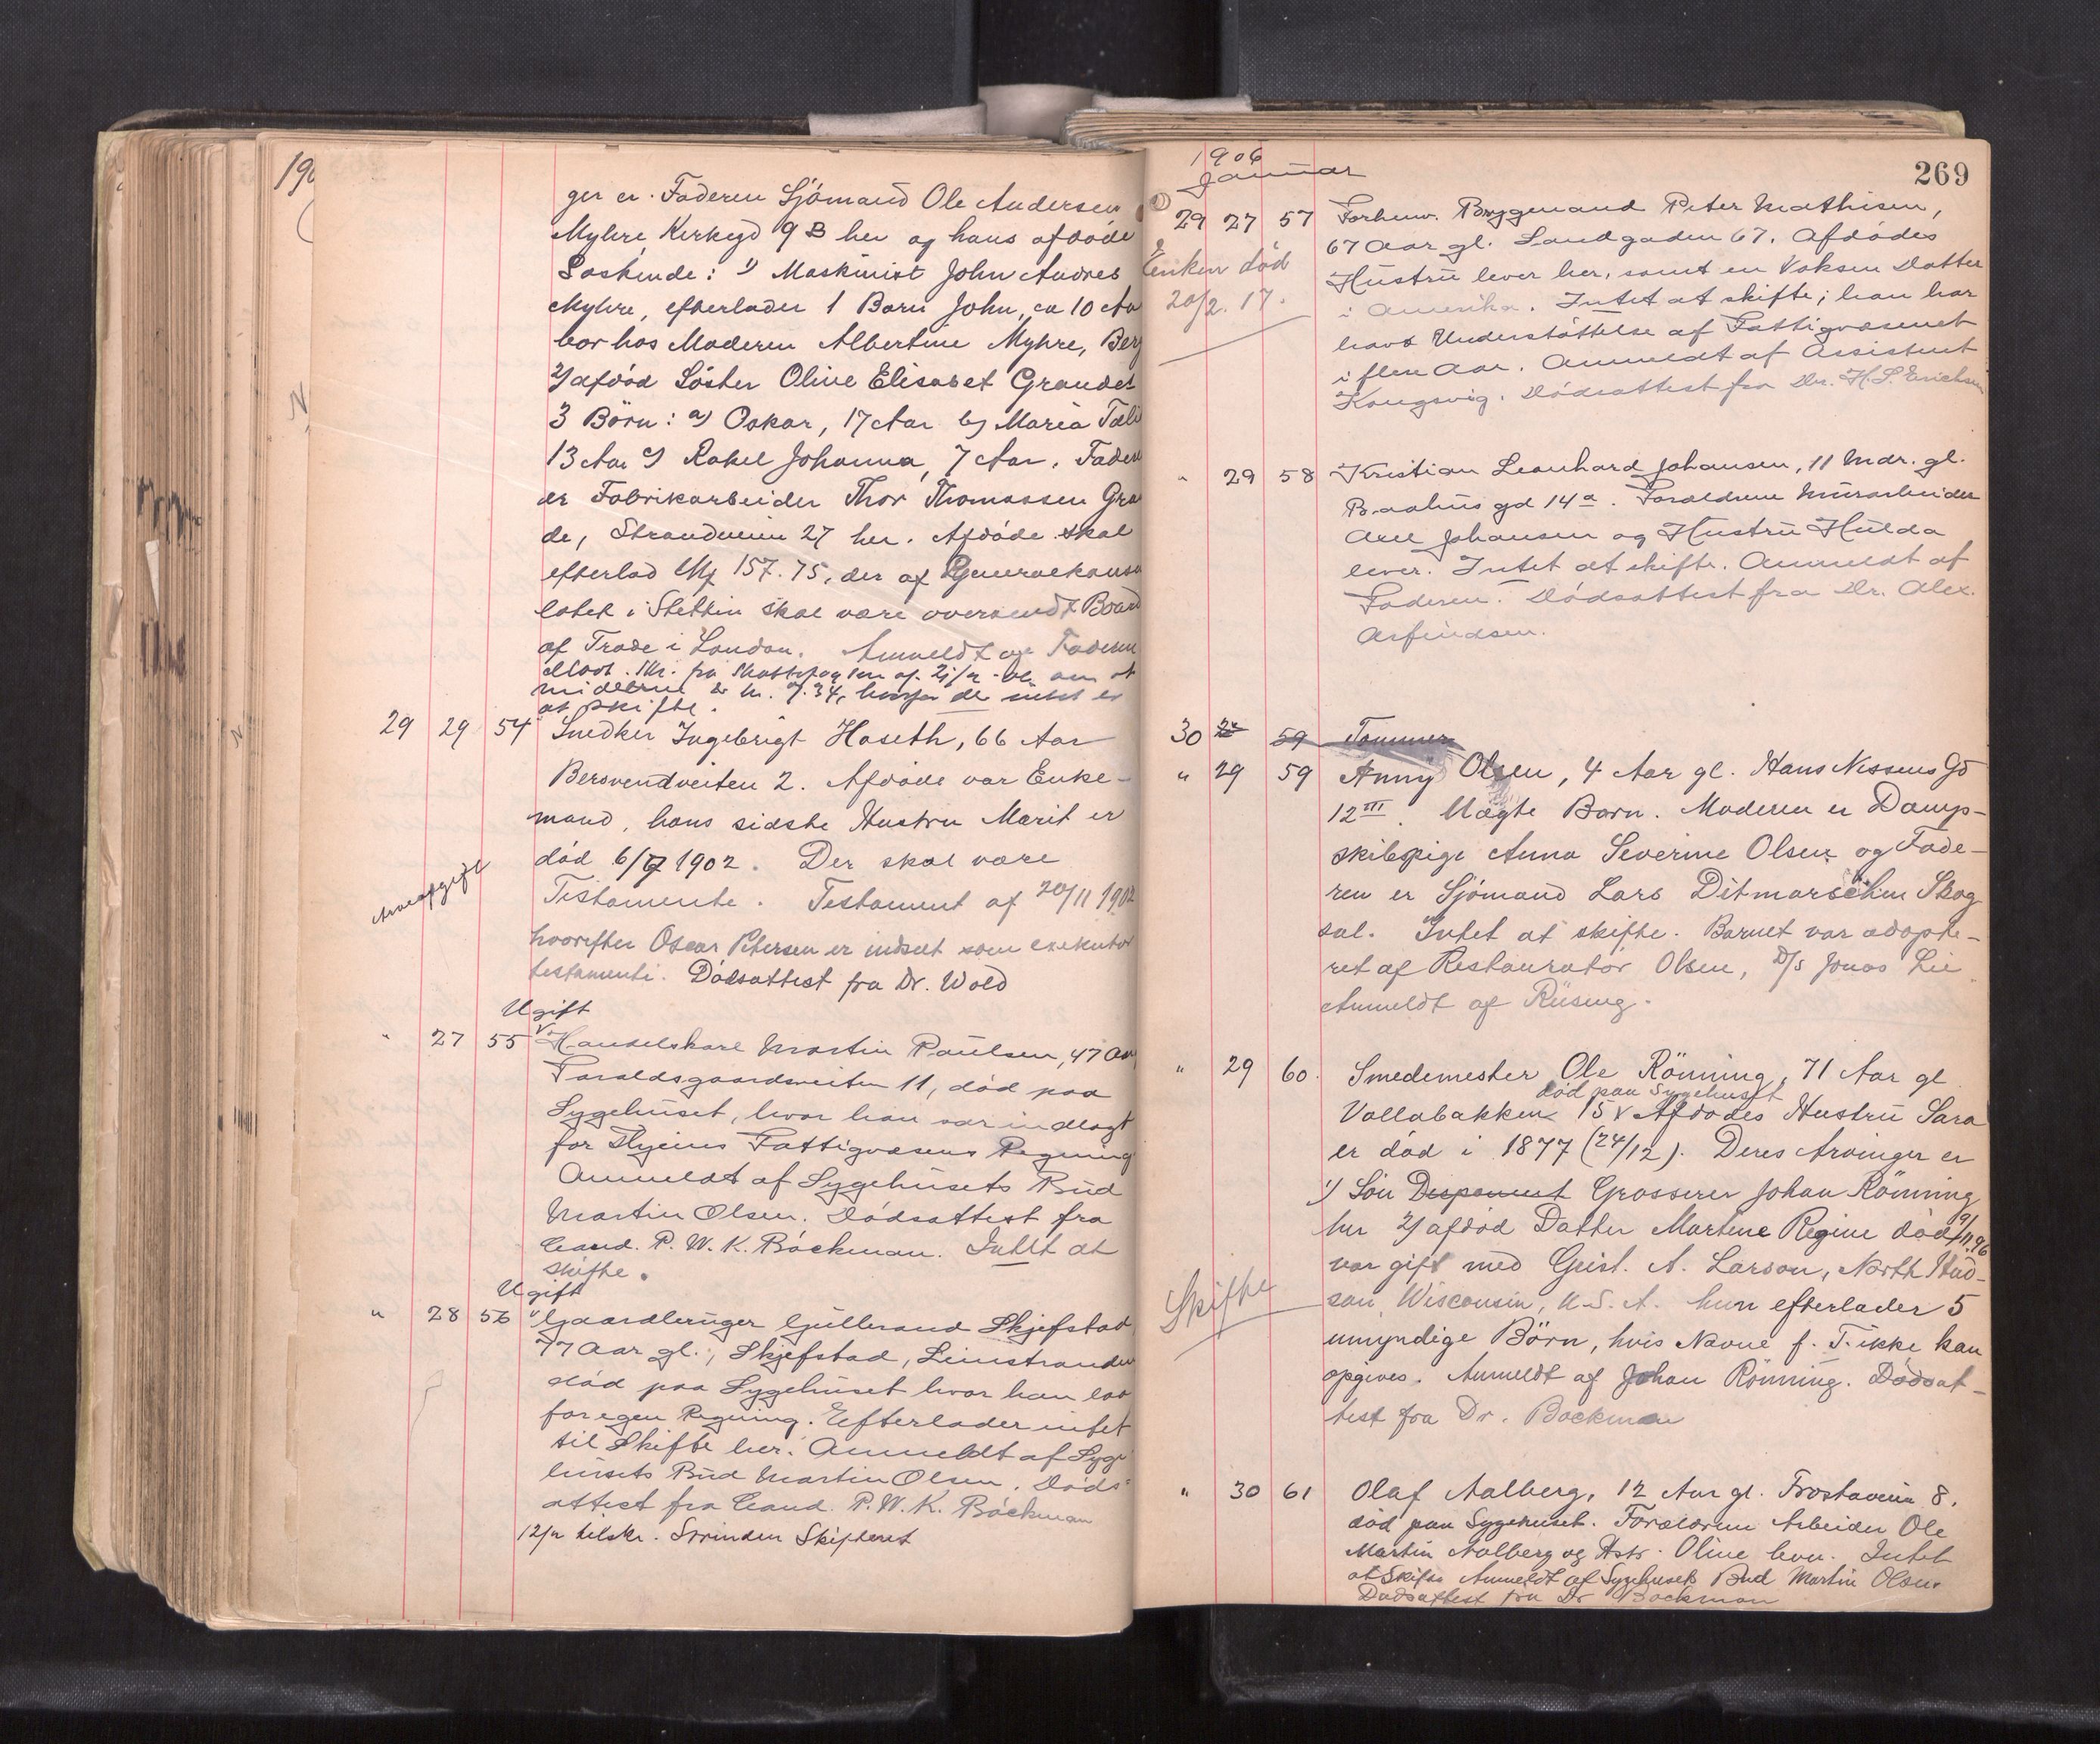 190
ger er. Faderen Sjömand Ole Andersen
Myhre, Kirkegd 9 B her og hans afdöde
Söskende: 1) Maskinist John Andres
Myhre, efterlader 1 Barn John, ca 10 Aar
bor hos Moderen Albertine Myhre, Berg
2) afdöd Söster Olive Elisabet Grande
3 Börn: a) Oskar, 17 Aar b) Maria
13 Aar c) Rakel Johanna, 7 Aar. Fader
er Fabrikarbeider Thor Thomassen Gran
de, Strandveien 27 her. Afdöde skal
efterlad Mk 157.75, der af Generalkonsu
latet i Stettin skal være oversendt Board
af Trade i London. Anmeldt af Faderen
at
midlerne er kr. 7.34, hvorfor der intet er
at skifte.
29 29 54 Snedker Ingebrigt Hoseth, 66 Aar
Bersvendveiten 2. Afdöde var Enke-
mand, hans sidste Hustru Marit er
död 6/7 1902. Der skal være
Arveafgift
Testamente. Testament af 20/11 1902
hvorefter Oscar Petersen er indsat som exekutor
testamenti. Dödsattest fra Dr. Wold
Ugift
" 27 55 Handelskarl Martin Paulsen, 47 Aar
Taraldsgaardsveiten 11, död paa
Sygehuset, hvor han var indlagt
for Byens Fattigvæsens Regning
Anmeldt af Sygehusets Bud
Martin Olsen. Dödsattest fra
Cand. P. W. K. Böckman. Intet at
skifte.
Ugift
" 28 56 Gaardbruger Gullerand Skjefstad
77 Aar gl., Skjefstad, Leinstranden
död paa Sygehuset hvor han laa
for egen Regning. Efterlader intet
til Skifte her. Anmeldt af Syge
husets Bud Martin Olsen. Döds-
attest fra Cand. P. W. K. Böckman
12/2 tilskr. Strinden Skifteret
1906
Januar
269
29 27 57 Forhenv. Bryggemand Peter Mathisen,
67 Aar gl. Sandgaden 67. Afdödes
Enken död
Hustru lever her, samt en Voksen Datter
20/2. 17.
i Amerika. Intet at skifte; han har
havt Understöttelse af Fattigvæsenet
i flere Aar. Anmeldt af Assistent
Kongsvig. Dödsattest fra Dr. H. S. Erichsen
" 29 58 Kristian Leonhard Johansen, 11 Mdr. gl.
Baahus gd 14a. Forældrene Murarbeider
Axel Johansen og Hustru Hulda
lever. Intet at skifte. Anmeldt af
Faderen. Dödsattest fra Dr. Alex.
Arfindsen.
30 59 Tömmer
" 29 59 Anny Olsen, 4 Aar gl. Hans Nissens Gd
12 III. Uægte Barn. Moderen er Damp-
skibspige Anna Severine Olsen og Fade-
ren er Sjömand Lars Ditmarschen Skog
sal. Intet at skifte. Barnet var adopte-
ret af Restauratör Olsen, D/S Jonas Lie
Anmeldt af Riising.
" 29 60. Smedemester Ole Rönning, 71 Aar gl
död paa Sygehuset
Vollabakken 15 v Afdödes Hustru Sara
er död i 1877 (24/12). Deres Arvinger er
1) Sön Disponent Grosserer Johan Rönning
her 2) afdöd Datter Martine Regine död 9/11.96
var gift med Geist. A. Larson, North Hud-
Skifte
son, Wisconsin, U. S. A. hun efterlader 5
umyndige Börn, hvis Navne f. T. ikke kan
opgives. Anmeldt af Johan Rönning. Dödsat-
test fra Dr. Böckman
" 30 61 Olaf Aalberg, 12 Aar gl. Frostaveien 8,
död paa Sygehuset. Forældrene Arbeider Ole
Martin Aalberg og Hstr. Oline lever. Intet
at Skifte Anmeldt af Sygehusets Bud Martin Olsen.
Dödsattest fra Dr Böckman